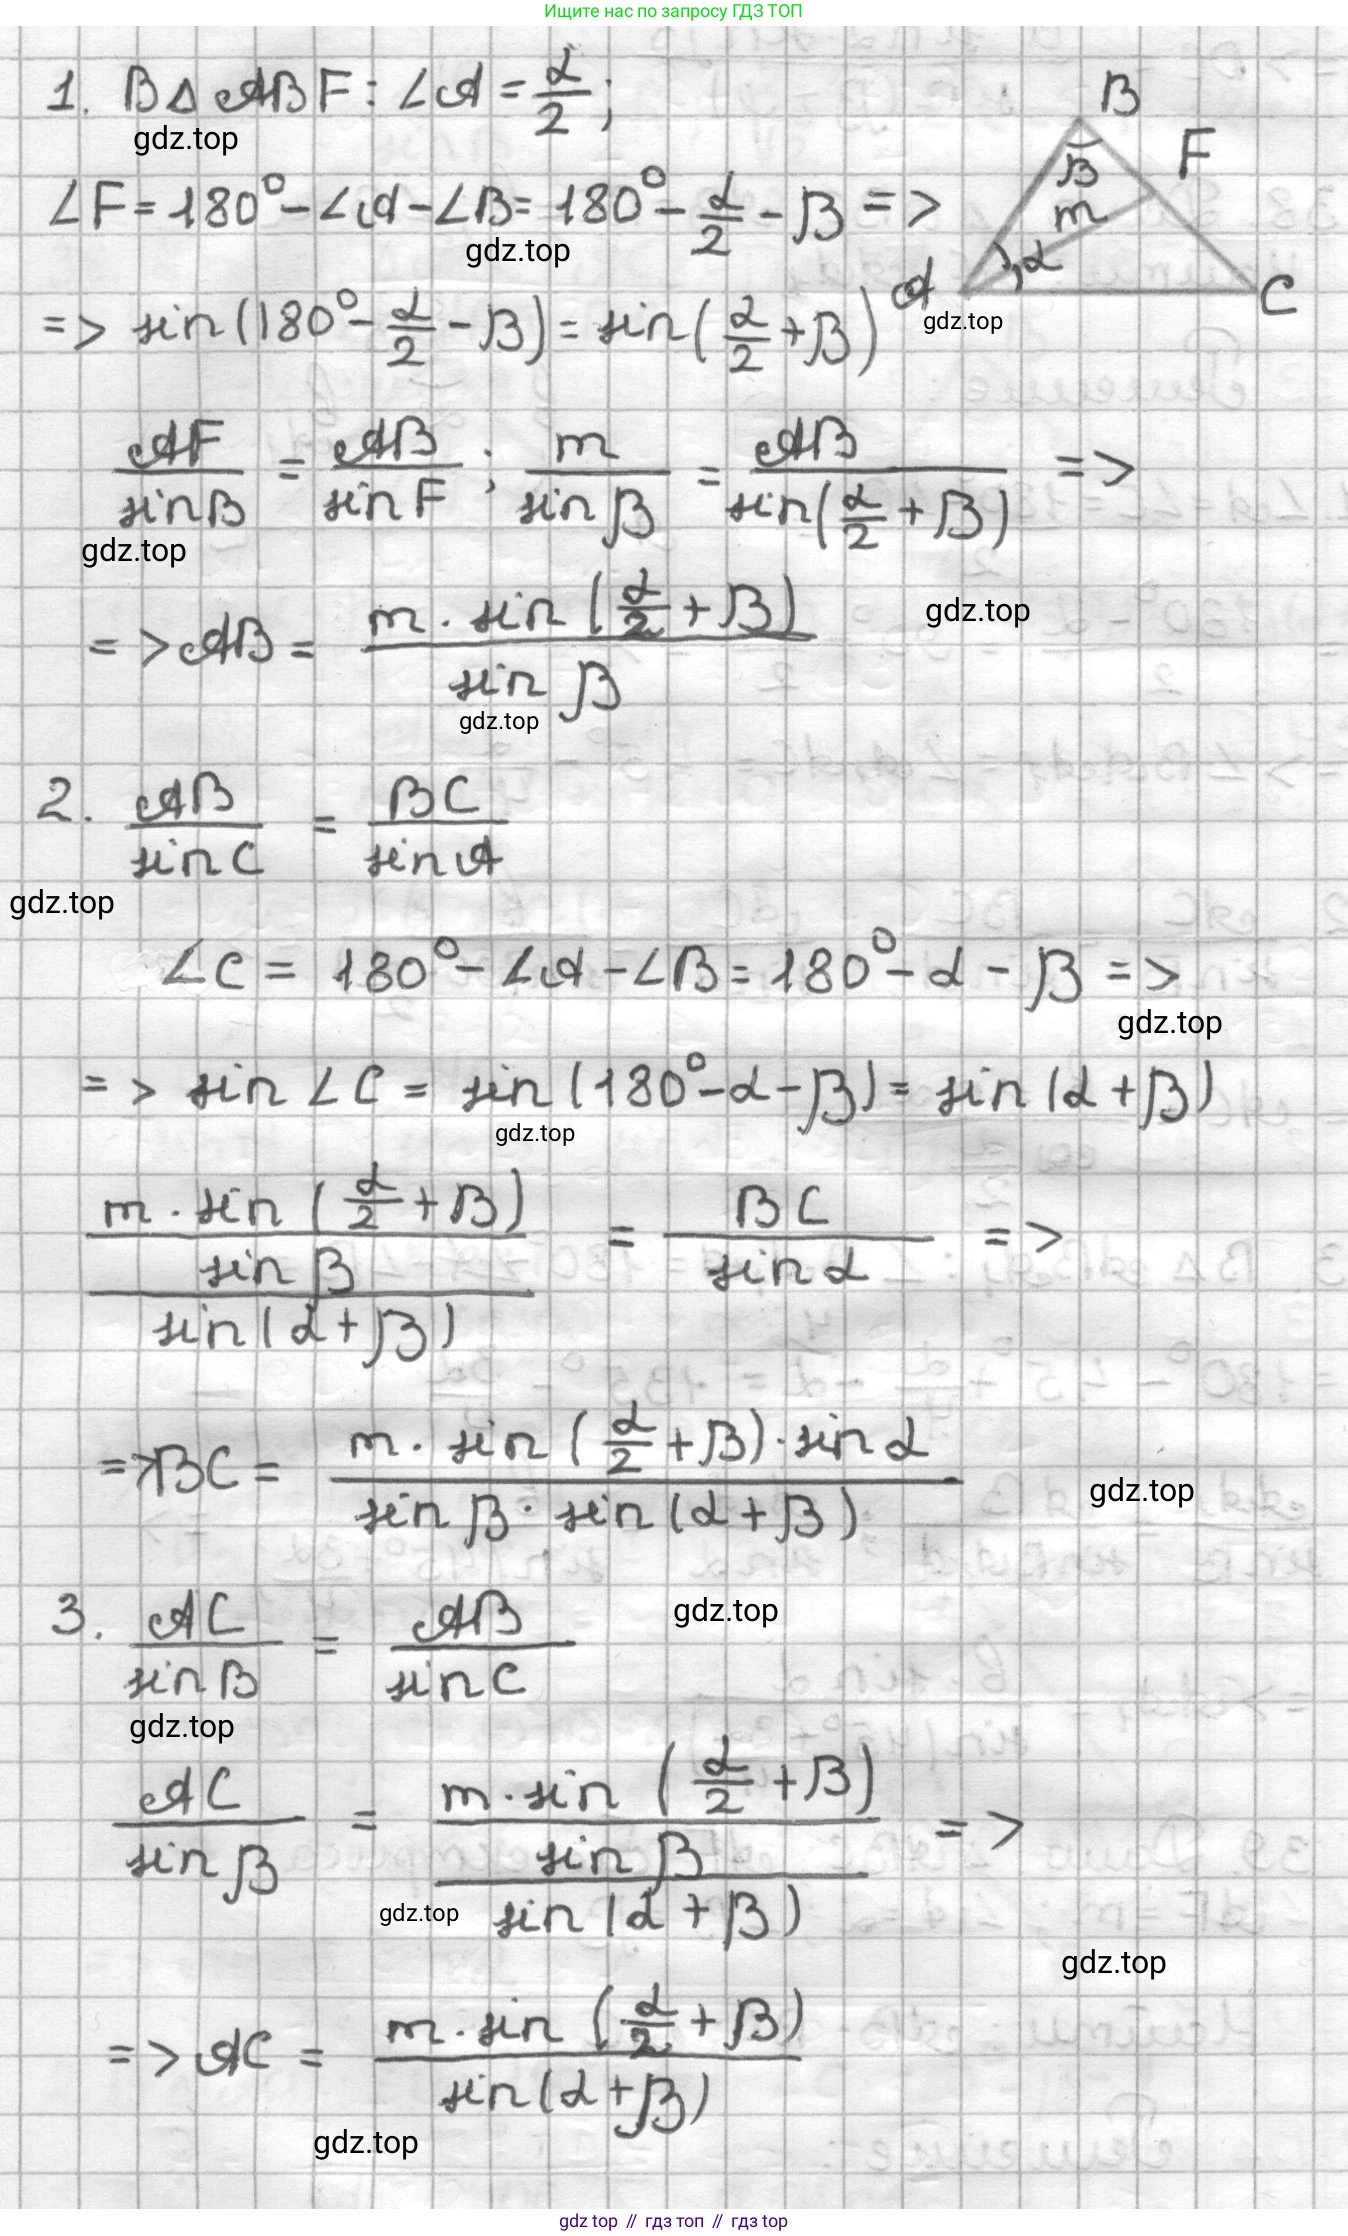 Ищите нас по запросу ГДЗ ТОП
1. В △ ABF: ∠A = α/2;
gdz.top
∠F = 180° − ∠A − ∠B = 180° − α/2 − β =>
gdz.top
=> sin(180° − α/2 − β) = sin(α/2 + β)
B
F
β
m
α
A
C
gdz.top
AF/sinB = AB/sinF; m/sinβ = AB/sin(α/2 + β) =>
gdz.top
=> AB = m · sin(α/2 + β)/sin β
gdz.top
gdz.top
2. AB/sinC = BC/sinA
gdz.top
∠C = 180° − ∠A − ∠B = 180° − α − β =>
gdz.top
=> sin∠C = sin(180° − α − β) = sin(α + β)
gdz.top
m · sin(α/2 + β)/sinβ/sin(α + β) = BC/sinα =>
=> BC = m · sin(α/2 + β) · sinα/sinβ · sin(α + β)
gdz.top
3. AC/sinB = AB/sinC
gdz.top
gdz.top
AC/sinβ = m · sin(α/2 + β)/sinβ/sin(α + β) =>
gdz.top
gdz.top
=> AC = m · sin(α/2 + β)/sin(α + β)
gdz.top
gdz top // гдз топ // гдз top